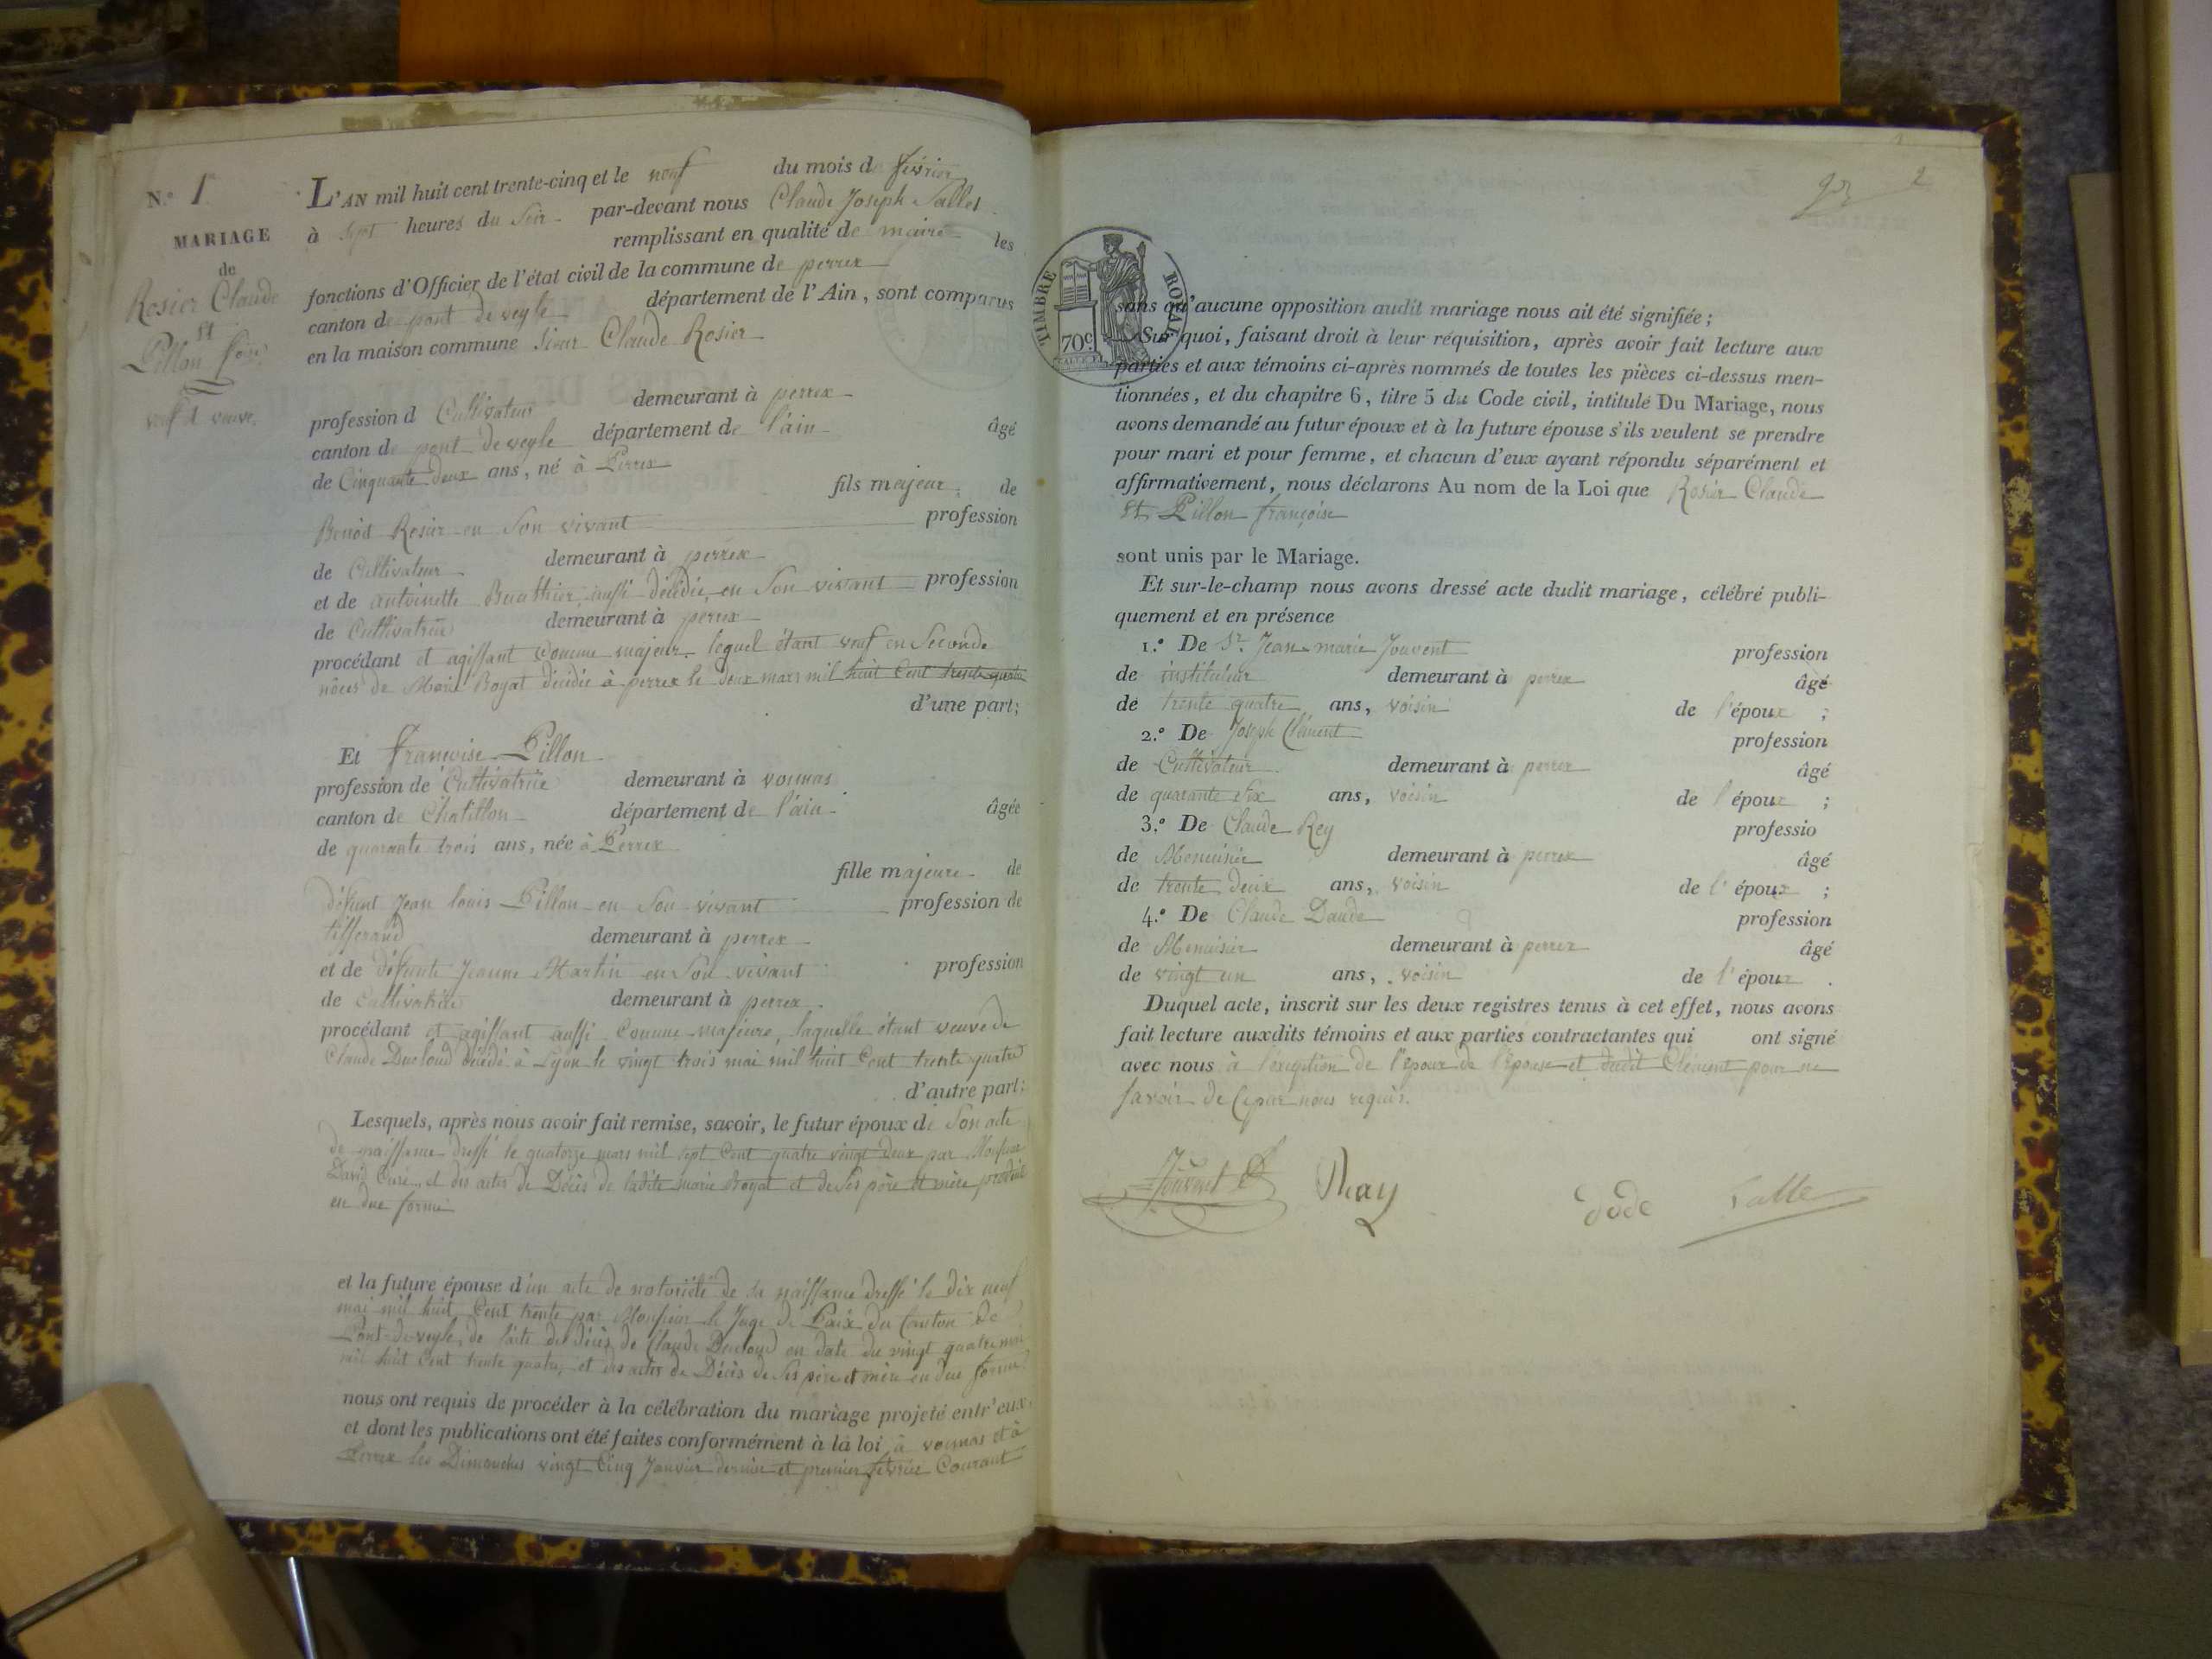 N.º 1.er
MARIAGE
de
Rosier Claude
et
Pillon fçoise
veuf & veuve.
L'AN mil huit cent trente-cinq et le neuf du mois de février
à sept heures du soir par-devant nous Claude Joseph Salles
remplissant en qualité de maire les
fonctions d'Officier de l'état civil de la commune de perrex
canton de pont de veyle département de l'Ain, sont comparus
en la maison commune sieur Claude Rosier
profession d Cultivateur demeurant à perrex
canton de pont de veyle département de l'ain âgé
de Cinquante deux ans, né à Perrex
fils majeur de
Benoit Rosier en son vivant profession
de Cultivateur demeurant à perrex
et de antoinette Buathier, aussi décédée, en son vivant profession
de Cultivatrice demeurant à perrex
procédant et agissant comme majeur, lequel étant veuf en seconde
nôces de Marie Boyat décédée à perrex le deux mars mil huit cent trente quatre
d'une part;
Et françoise Pillon
profession de Cultivatrice demeurant à vonnas
canton de Chatillon département de l'ain âgée
de quarante trois ans, née à Perrex
fille majeure de
défunt Jean louis Pillon en son vivant profession de
tisserand demeurant à perrex
et de défunte Jeanne Martin en son vivant profession
de Cultivatrice demeurant à perrex
procédant et agissant aussi comme majeure, laquelle étant veuve de
Claude Ducloud décédé à Lyon le vingt trois mai mil huit cent trente quatre
d'autre part;
Lesquels, après nous avoir fait remise, savoir, le futur époux de son acte
de naissance dressé le quatorze mars mil sept cent quatre vingt deux par Monsieur
David Curé, et des actes de Décès de ladite marie Boyat et de ses père et mère produits
en due forme
et la future épouse d'un acte de notoriété de sa naissance dressé le dix neuf
mai mil huit cent trente par Monsieur le Juge de Paix du Canton de
Pont-de-veyle, de l'acte de décès de Claude Ducloud en date du vingt quatre mai
mil huit cent trente quatre, et des actes de Décès de ses père et mère en due forme
nous ont requis de procéder à la célébration du mariage projeté entr'eux
et dont les publications ont été faites conformément à la loi à vonnas et à
Perrex les Dimanches vingt Cinq Janvier dernier et premier février Courant
2
TIMBRE ROYAL
70 c.
sans qu'aucune opposition audit mariage nous ait été signifiée;
Sur quoi, faisant droit à leur réquisition, après avoir fait lecture aux
parties et aux témoins ci-après nommés de toutes les pièces ci-dessus men-
tionnées, et du chapitre 6, titre 5 du Code civil, intitulé Du Mariage, nous
avons demandé au futur époux et à la future épouse s'ils veulent se prendre
pour mari et pour femme, et chacun d'eux ayant répondu séparément et
affirmativement, nous déclarons Au nom de la Loi que Rosier Claude
et Pillon françoise
sont unis par le Mariage.
Et sur-le-champ nous avons dressé acte dudit mariage, célébré publi-
quement et en présence
1.º De Sr. Jean-marie Jouvent profession
de instituteur demeurant à perrex âgé
de trente quatre ans, voisin de l'époux ;
2.º De Joseph Clément profession
de Cultivateur demeurant à perrex âgé
de quarante six ans, voisin de l'époux ;
3.º De Claude Rey professio
de Menuisier demeurant à perrex âgé
de trente deux ans, voisin de l'époux ;
4.º De Claude Daude profession
de Menuisier demeurant à perrex âgé
de vingt un ans, voisin de l'époux .
Duquel acte, inscrit sur les deux registres tenus à cet effet, nous avons
fait lecture auxdits témoins et aux parties contractantes qui ont signé
avec nous à l'exception de l'époux de l'épouse et dudit Clément pour ne
savoir de ce par nous requis.
Jouvent Rey dode Salle